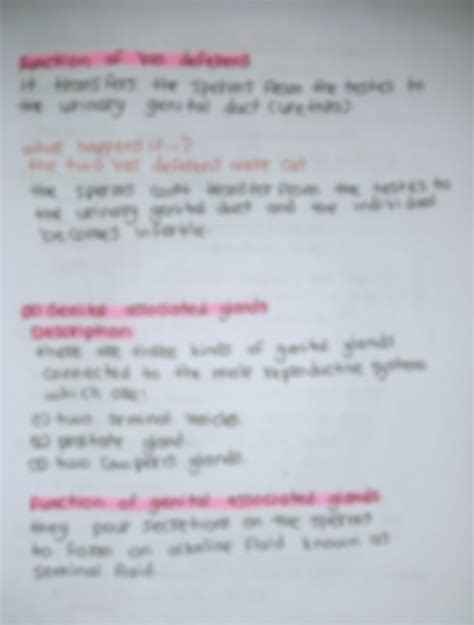 Function of vas deferens
it transfers the sperms from the testes to
the urinary genital duct (urethra)
what happens if...?
the two vas deferens were cut
the sperms can't transfer from the testes to
the urinary genital duct and the individual
becomes infertile.
associated glands
Description
there are three kinds of genital glands
connected to the male reproductive system
which are:
two seminal vesicles.
prostate gland.
two cowper's glands.
Function of genital associated glands
they pour secretions on the sperms
to form an alkaline fluid known as
seminal fluid.